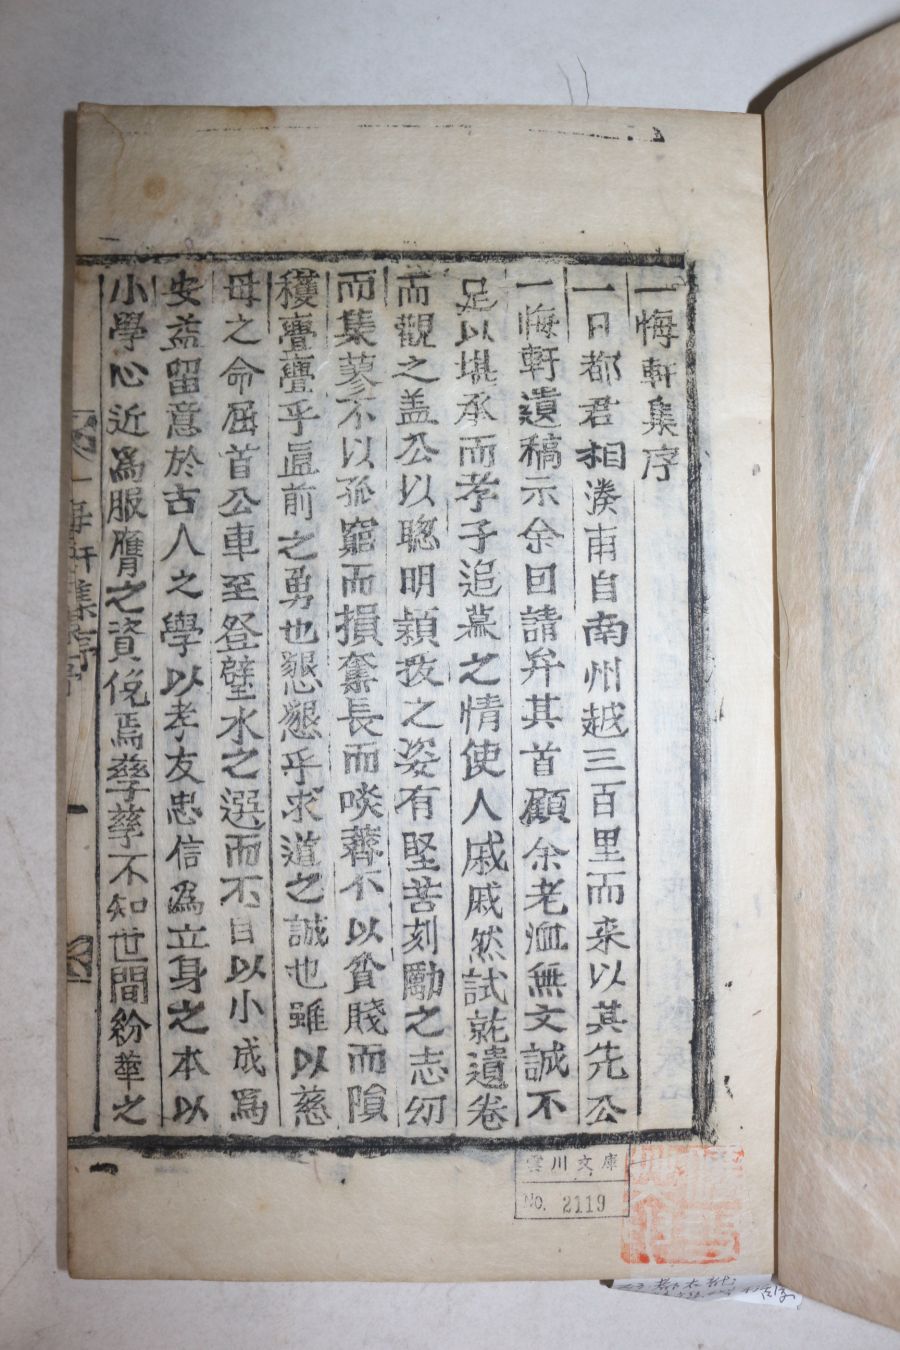 一悔軒集序
一日都君相湊甫自南州越三百里而来以其先公
一悔軒遺稿示余回請弁其首顧余老洫無文誠不
足以堪承而孝子追慕之情使人戚戚然試茈遺卷
而觀之盖公以聰明穎㧞之姿有堅苦刻勵之志㓜
而集蓼不以孤窮而損奮長而啖薺不以貧賤而隕
穫亹亹乎直前之勇也懇懇乎求道之誠也雖以慈
母之命屈首公車至登璧水之選而不自以小成爲
安益留意於古人之學以孝友忠信爲立身之本以
小學心近爲服膺之資俛焉孳孳不知世間紛華之
一悔軒集序
雲川文庫
No. 2119